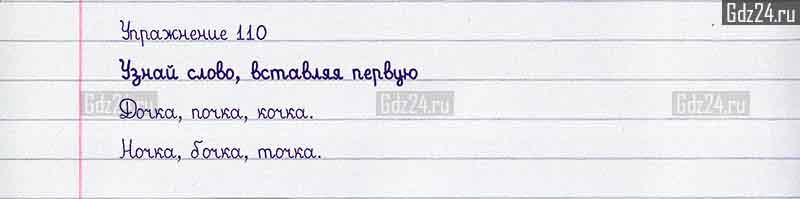 Gdz24.ru
Упражнение 110
Узнай слово, вставляя первую
Gdz24.ru Gdz24.ru Gdz24.ru
Дочка, почка, кочка.
Ночка, бочка, точка.